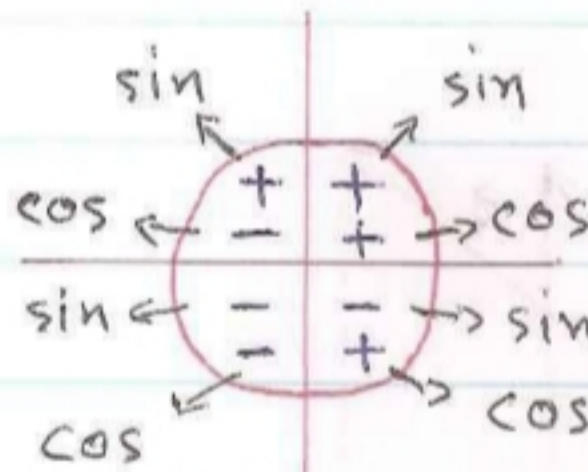 sin sin
+ +
cos - + cos
sin - - sin
- +
cos cos